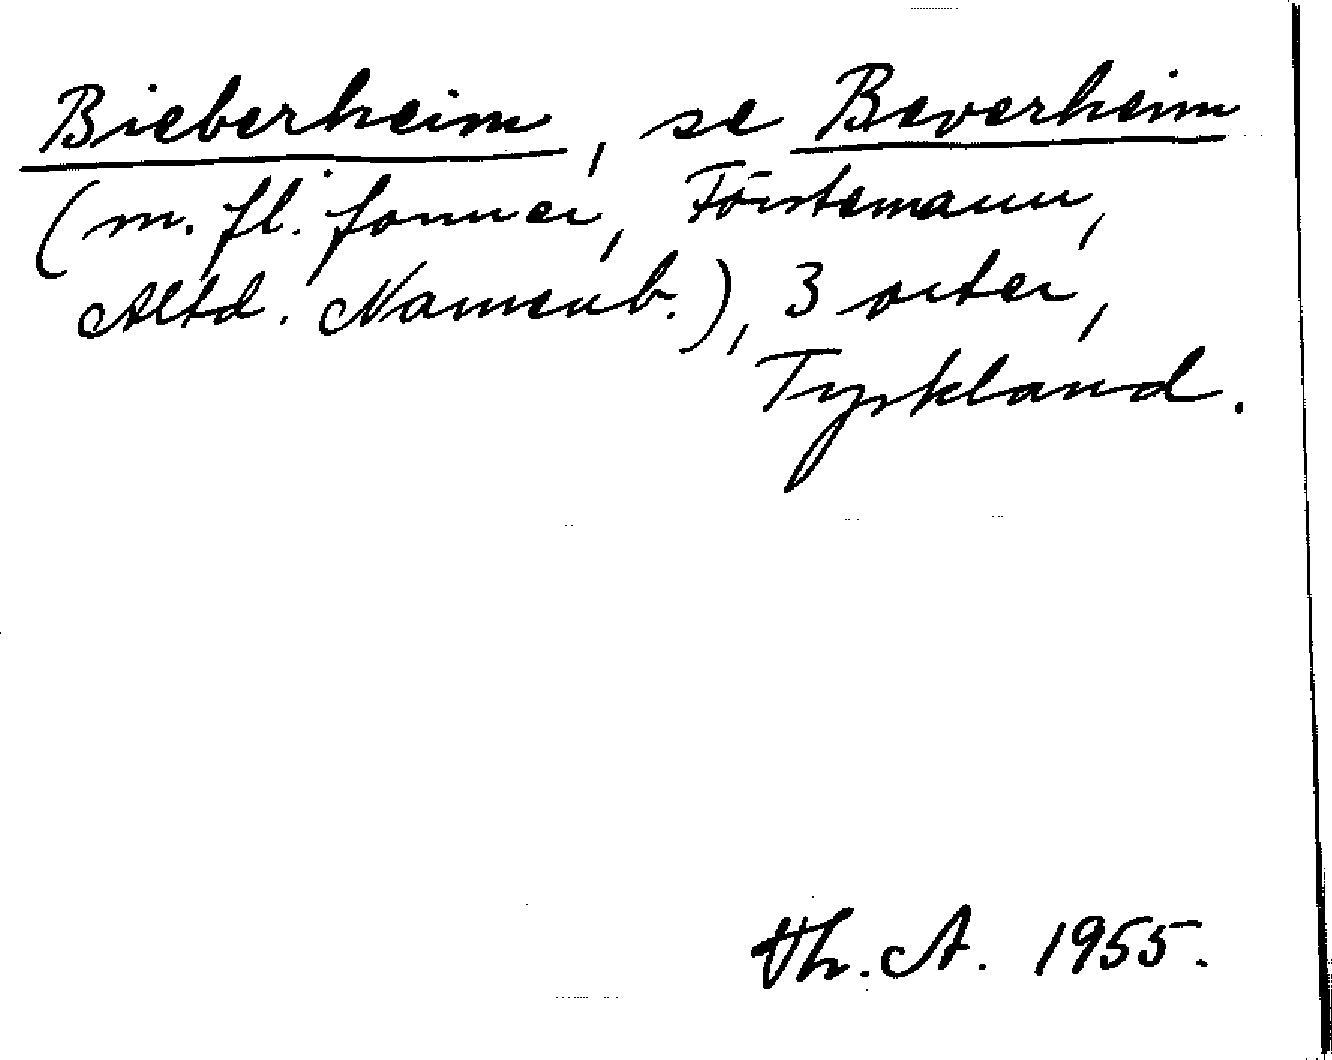 Bieberheim, se Beverheim
(m. fl. former, Förstemann,
Altd. Namenb.), 3 orter,
Tyrkland.
Th. A. 1955.